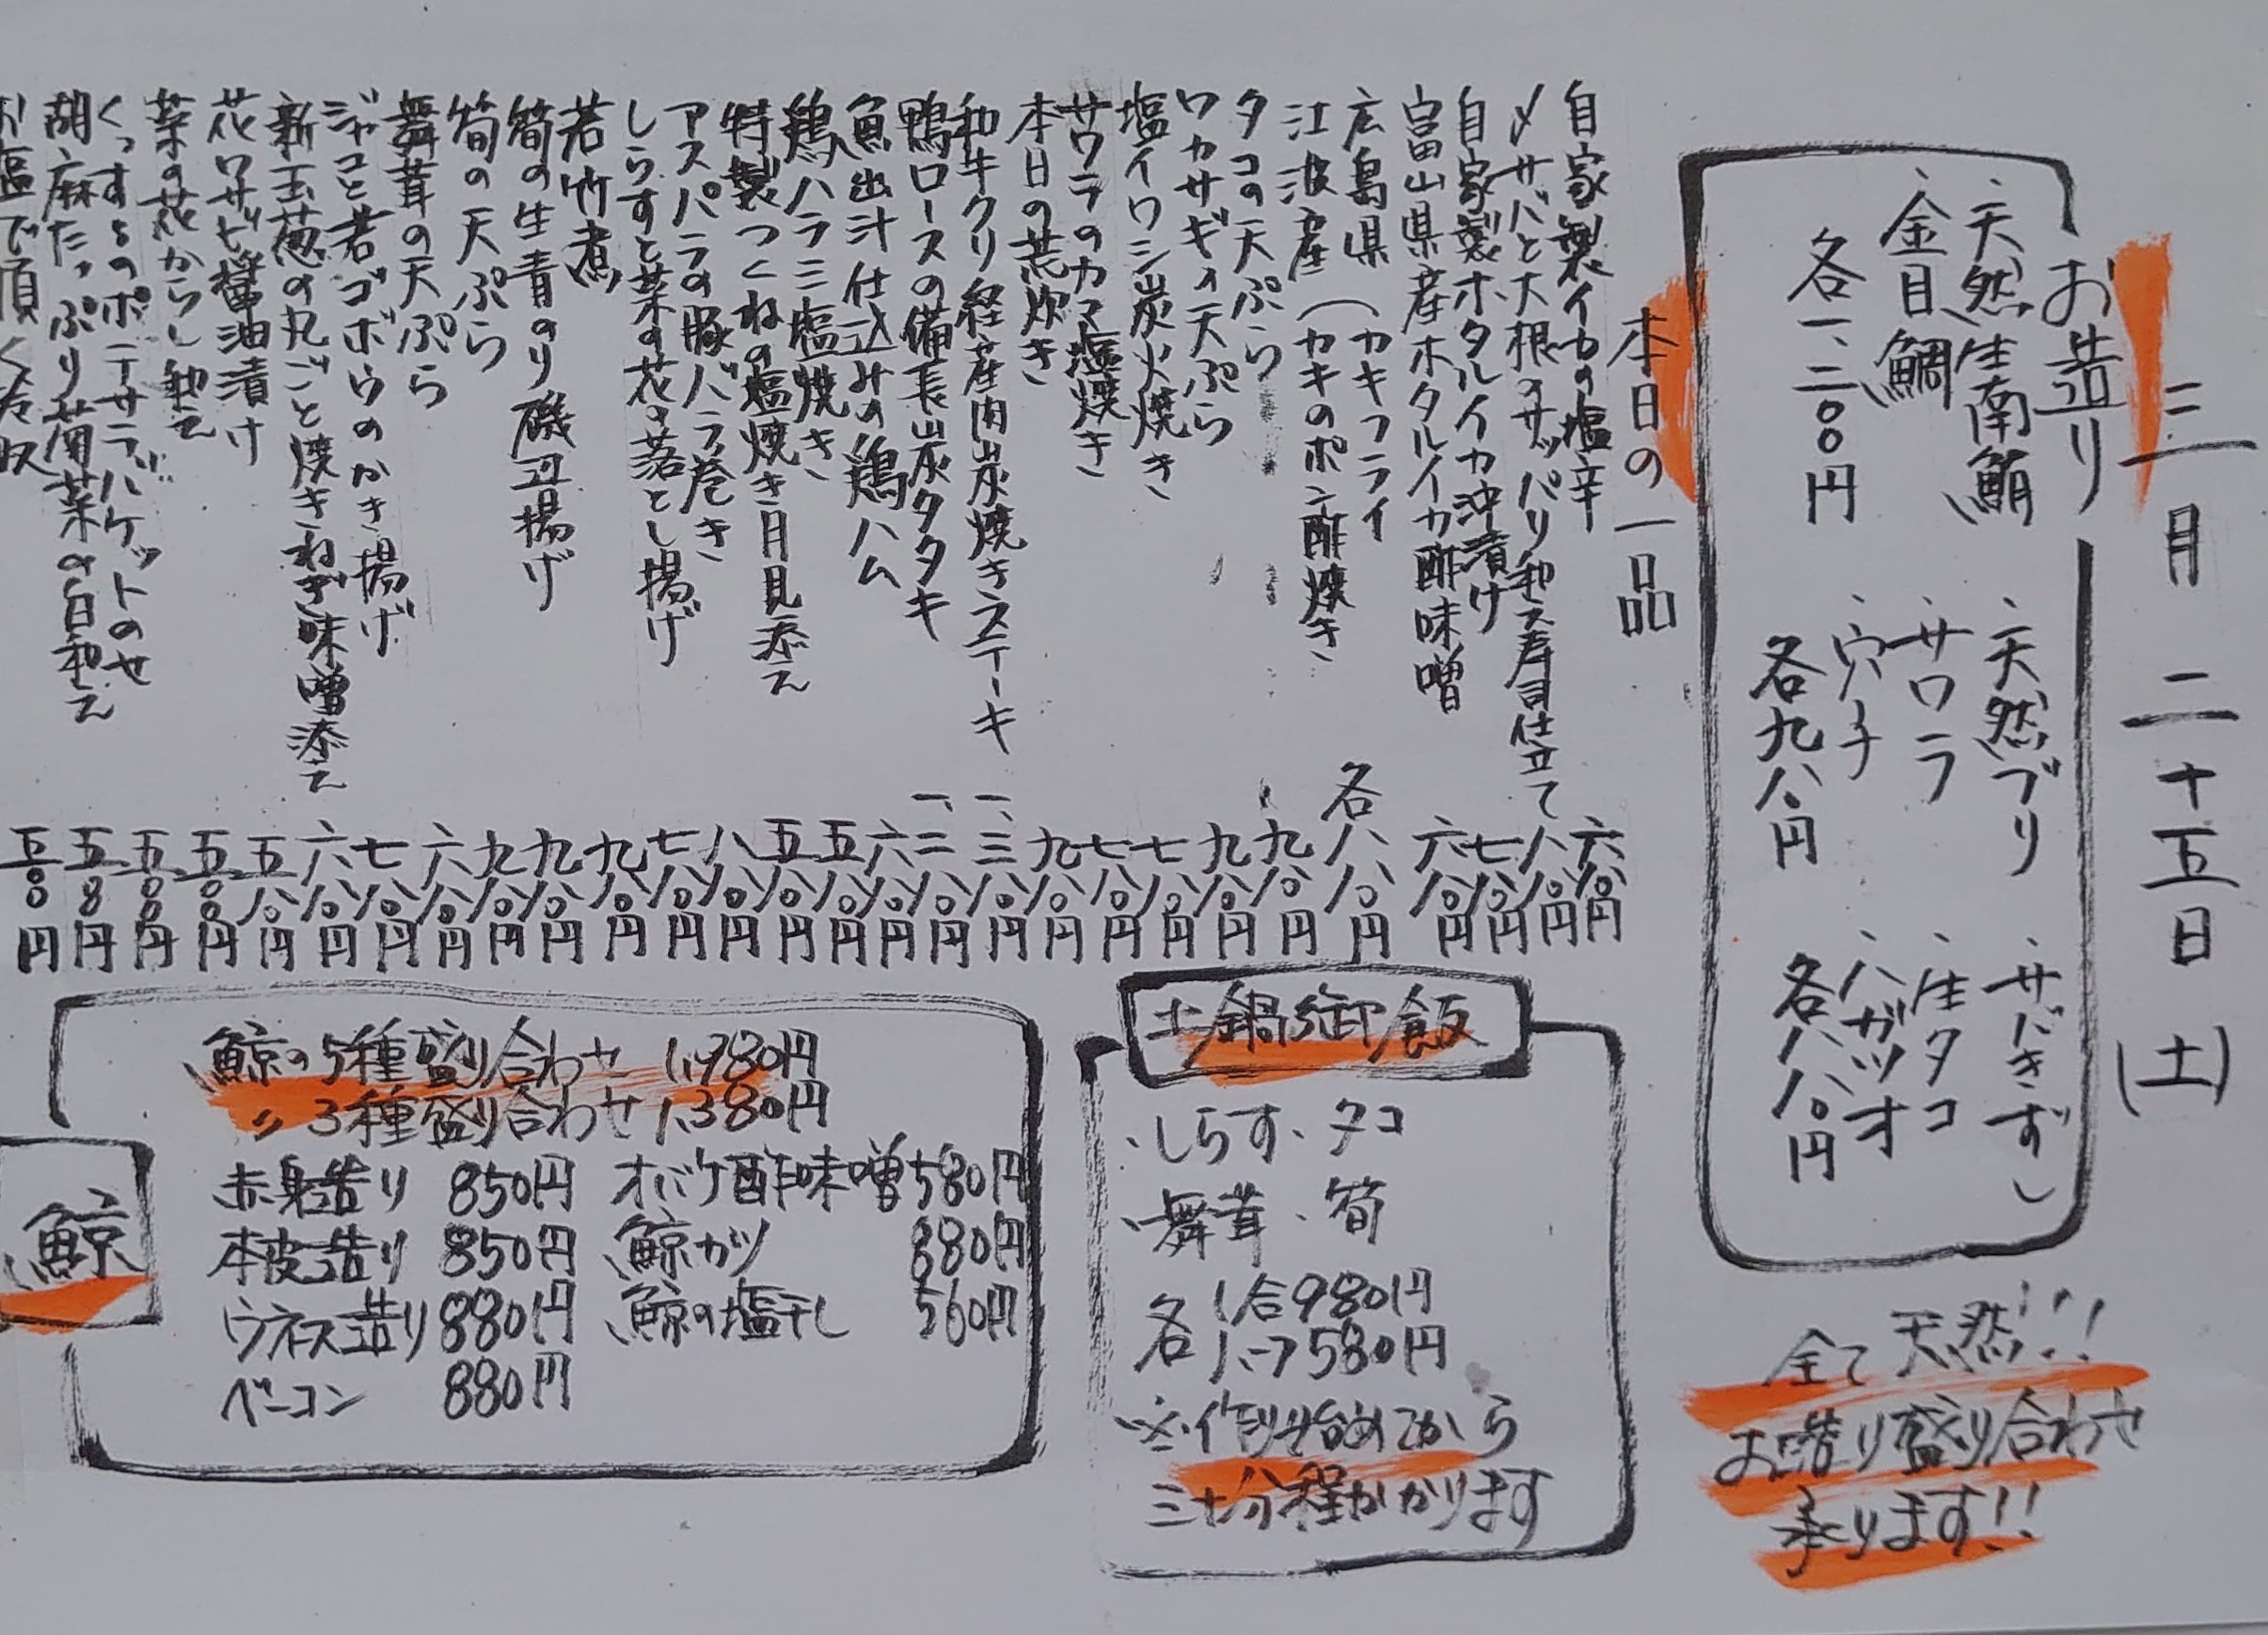 三月二十五日(土)
お造り
、天然生南鮪
、金目鯛
各一、二〇〇円
、天然ブリ
、サワラ
、穴子
各九八〇円
、サバきずし
、生タコ
、ハガツオ
各八八〇円
全て天然!!!
お造り盛り合わせ
承ります!!
本日の一品
自家製イカの塩辛 六八〇円
〆サバと大根のサッパリ和え寿司仕立て 八八〇円
自家製ホタルイカ沖漬け 七八〇円
富山県産ホタルイカ酢味噌 六八〇円
広島県
江波産(カキフライ
(カキのポン酢焼き 各八八〇円
タコの天ぷら 九八〇円
ワカサギの天ぷら 九八〇円
塩イワシ炭火焼き 七八〇円
サワラのカマ塩焼き 七八〇円
本日の荒炊き 九八〇円
和牛クリ経産肉炭焼きステーキ 一、三八〇円
鴨ロースの備長炭タタキ 一、二八〇円
魚出汁仕込みの鶏ハム 六八〇円
鶏ハラミ塩焼き 五八〇円
特製つくねの塩焼き月見添え 五八〇円
アスパラの豚バラ巻き 八八〇円
しらすと菜の花の落とし揚げ 七八〇円
若竹煮 九八〇円
筍の生青のり磯辺揚げ 九八〇円
筍の天ぷら 九八〇円
舞茸の天ぷら 六八〇円
ジャコと若ゴボウのかき揚げ 七八〇円
新玉葱の丸ごと焼きねぎ味噌添え 六八〇円
花ワサビ醤油漬け 五八〇円
菜の花からし和え 五〇〇円
くんすものポテサラバケットのせ 五〇〇円
胡麻たっぷり菊菜の白和え 五〇〇円
お塩で頂く冷奴 五〇〇円
土鍋御飯
、しらす、タコ
、舞茸、筍
各1合980円
各ハーフ580円
※作り始めてから
三十分程かかります
鯨
鯨の5種盛り合わせ 1,980円
〃 3種盛り合わせ 1,380円
赤身造り 850円 オバケ酢味噌 580円
本皮造り 850円 鯨カツ 880円
ウネス造り 880円 鯨の塩干し 560円
ベーコン 880円